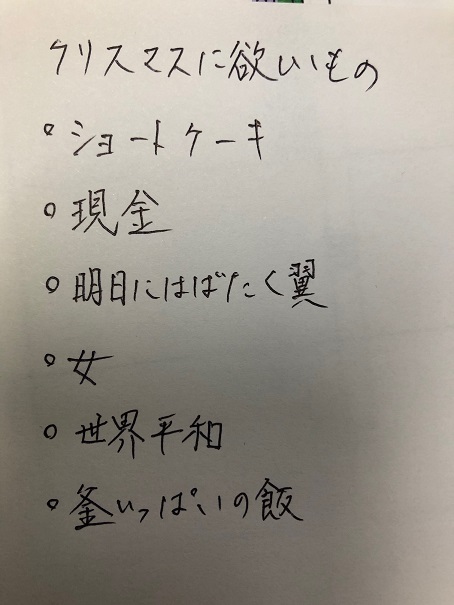 クリスマスに欲いいもの
○ショートケーキ
○現金
○明日にはばたく翼
○女
○世界平和
○釜いっぱいの飯